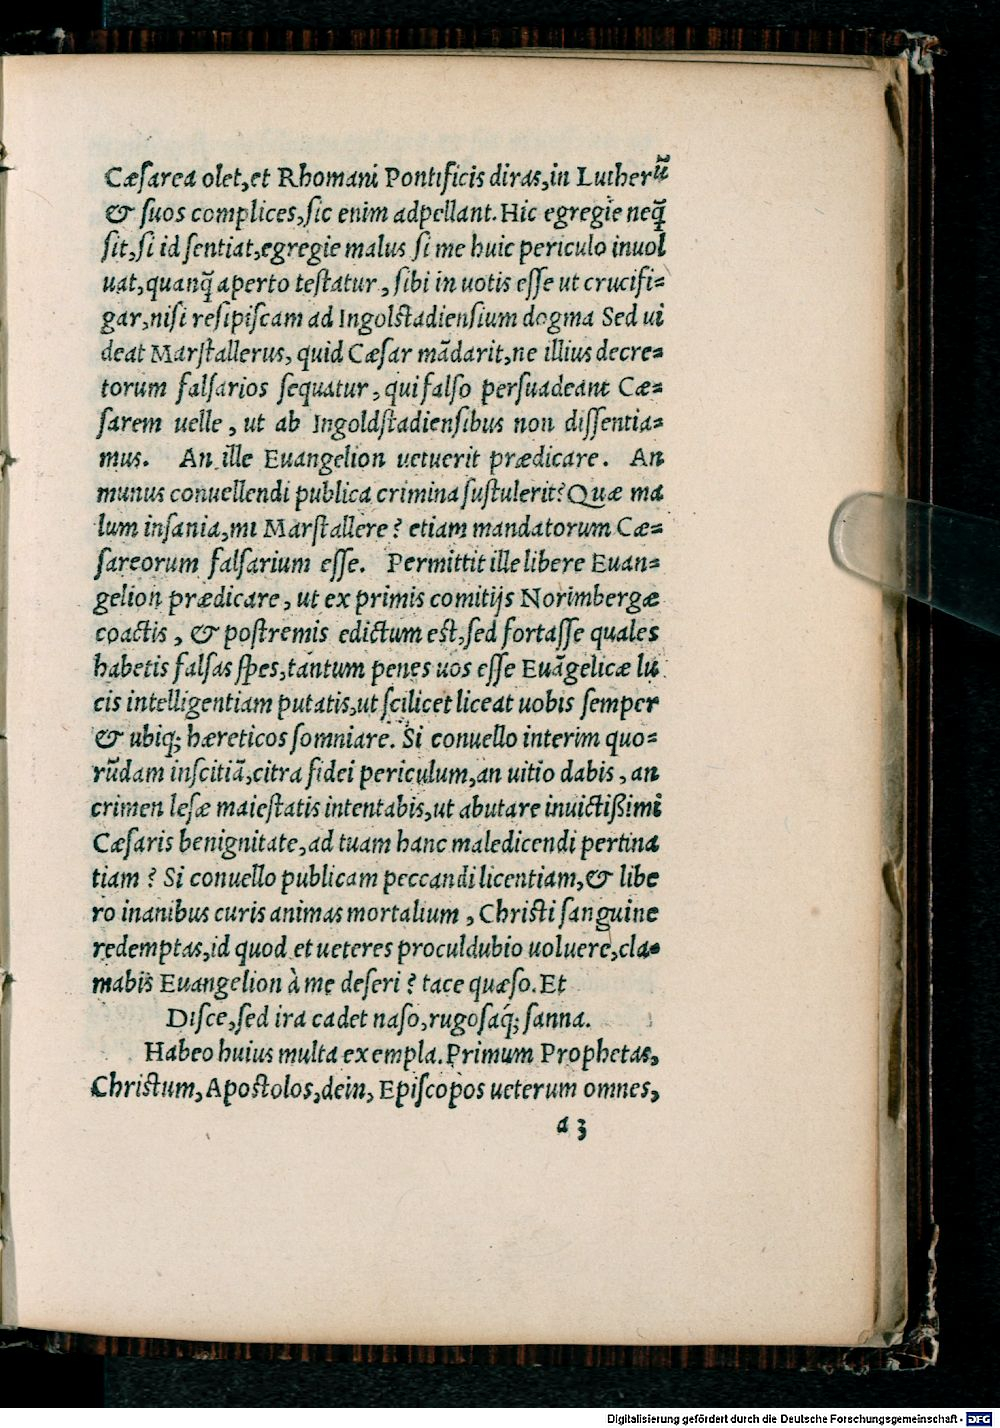 Cæſarea olet, et Rhomani Pontificis diras, in Lutherũ
& ſuos complices, ſic enim adpellant. Hic egregie neq̃
ſit, ſi id ſentiat, egregie malus ſi me huic periculo inuol
uat, quanq̃ aperto teſtatur, ſibi in uotis eſſe ut crucifi⸗
gar, niſi reſipiſcam ad Ingolſtadienſium dogma Sed ui
deat Marſtallerus, quid Cæſar mãdarit, ne illius decre⸗
torum falſarios ſequatur, qui falſo perſuadeant Cæ⸗
ſarem uelle, ut ab Ingoldſtadienſibus non diſſentia⸗
mus. An ille Euangelion uetuerit prædicare. An
munus conuellendi publica crimina ſuſtulerit? Quæ ma
lum inſania, mi Marſtallere? etiam mandatorum Cæ⸗
ſareorum falſarium eſſe. Permittit ille libere Euan⸗
gelion prædicare, ut ex primis comitijs Norimbergæ
coactis, & poſtremis edictum eſt, ſed fortaſſe quales
habetis falſas ſpes, tantum penes uos eſſe Euãgelicæ lu
cis intelligentiam putatis, ut ſcilicet liceat uobis ſemper
& ubiq; hæreticos ſomniare. Si conuello interim quo⸗
rũdam inſcitiã, citra fidei periculum, an uitio dabis, an
crimen leſæ maieſtatis intentabis, ut abutare inuictißimi
Cæſaris benignitate, ad tuam hanc maledicendi pertina
tiam? Si conuello publicam peccandi licentiam, & libe
ro inanibus curis animas mortalium, Chriſti ſanguine
redemptas, id quod et ueteres proculdubio uoluere, cla⸗
mabis Euangelion à me deſeri? tace quæſo. Et
Diſce, ſed ira cadet naſo, rugoſaq́; ſanna.
Habeo huius multa exempla. Primum Prophetas,
Chriſtum, Apoſtolos, dein, Epiſcopos ueterum omnes,
a 3
Digitalisierung gefördert durch die Deutsche Forschungsgemeinschaft - DFG